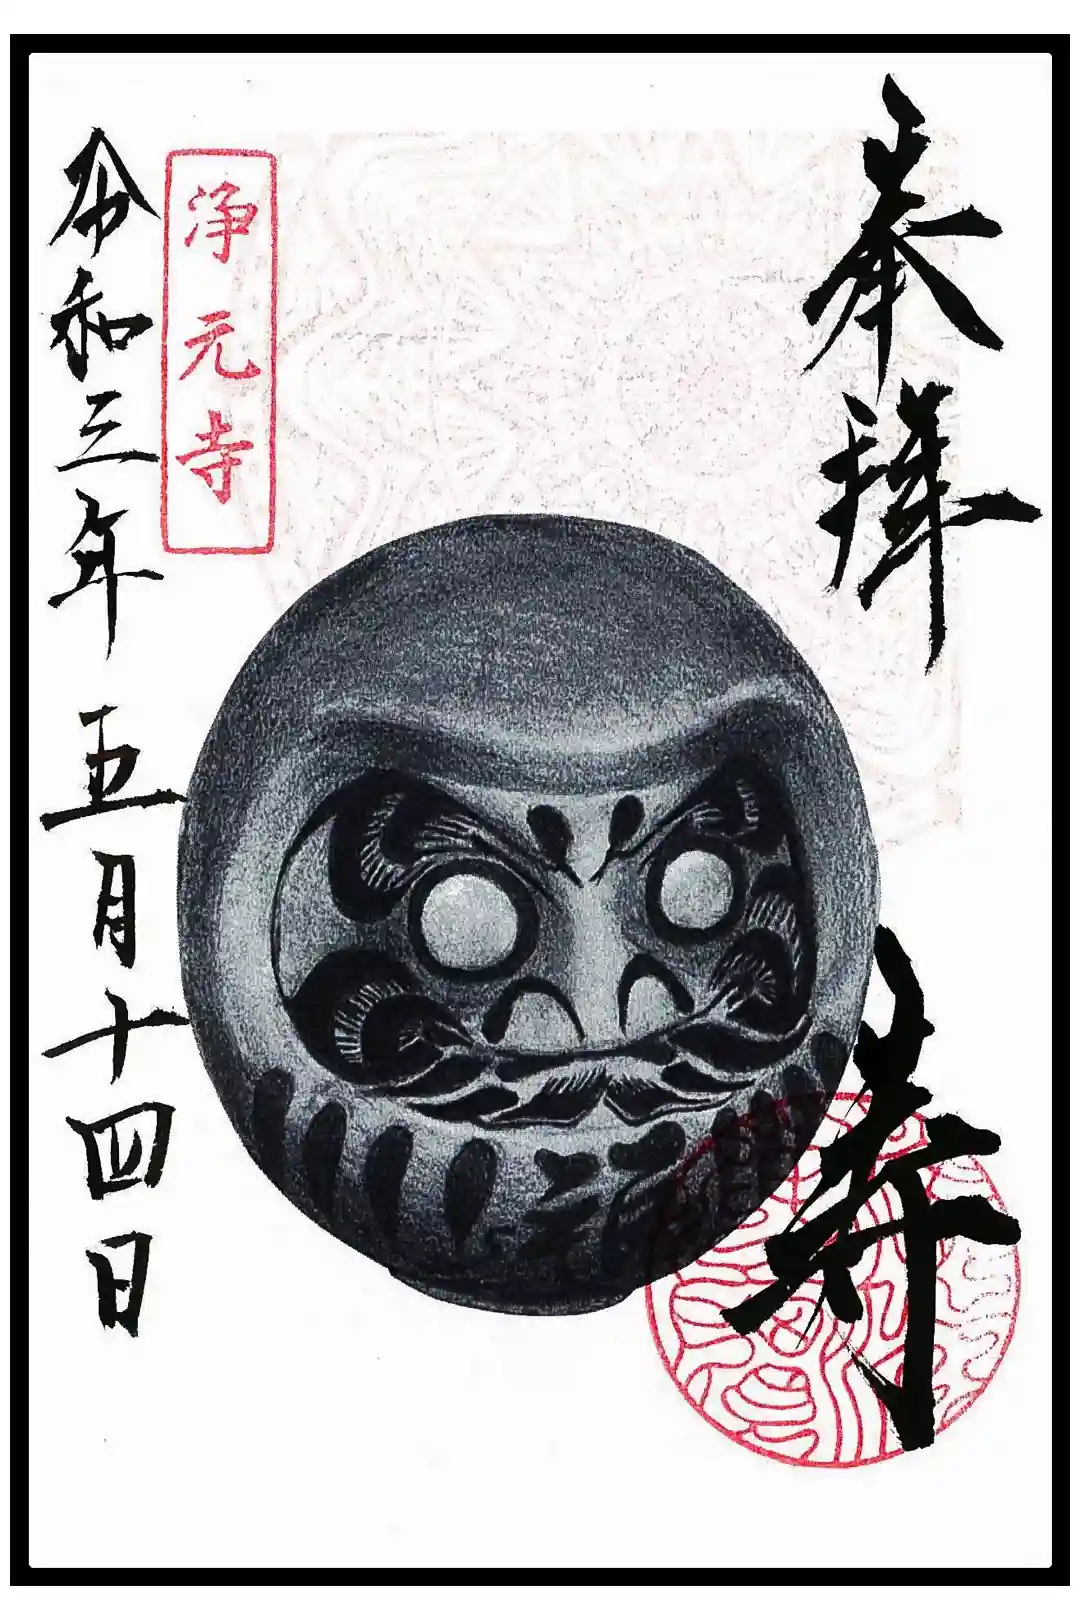 奉拝
寺
浄元寺
令和三年 五月十四日